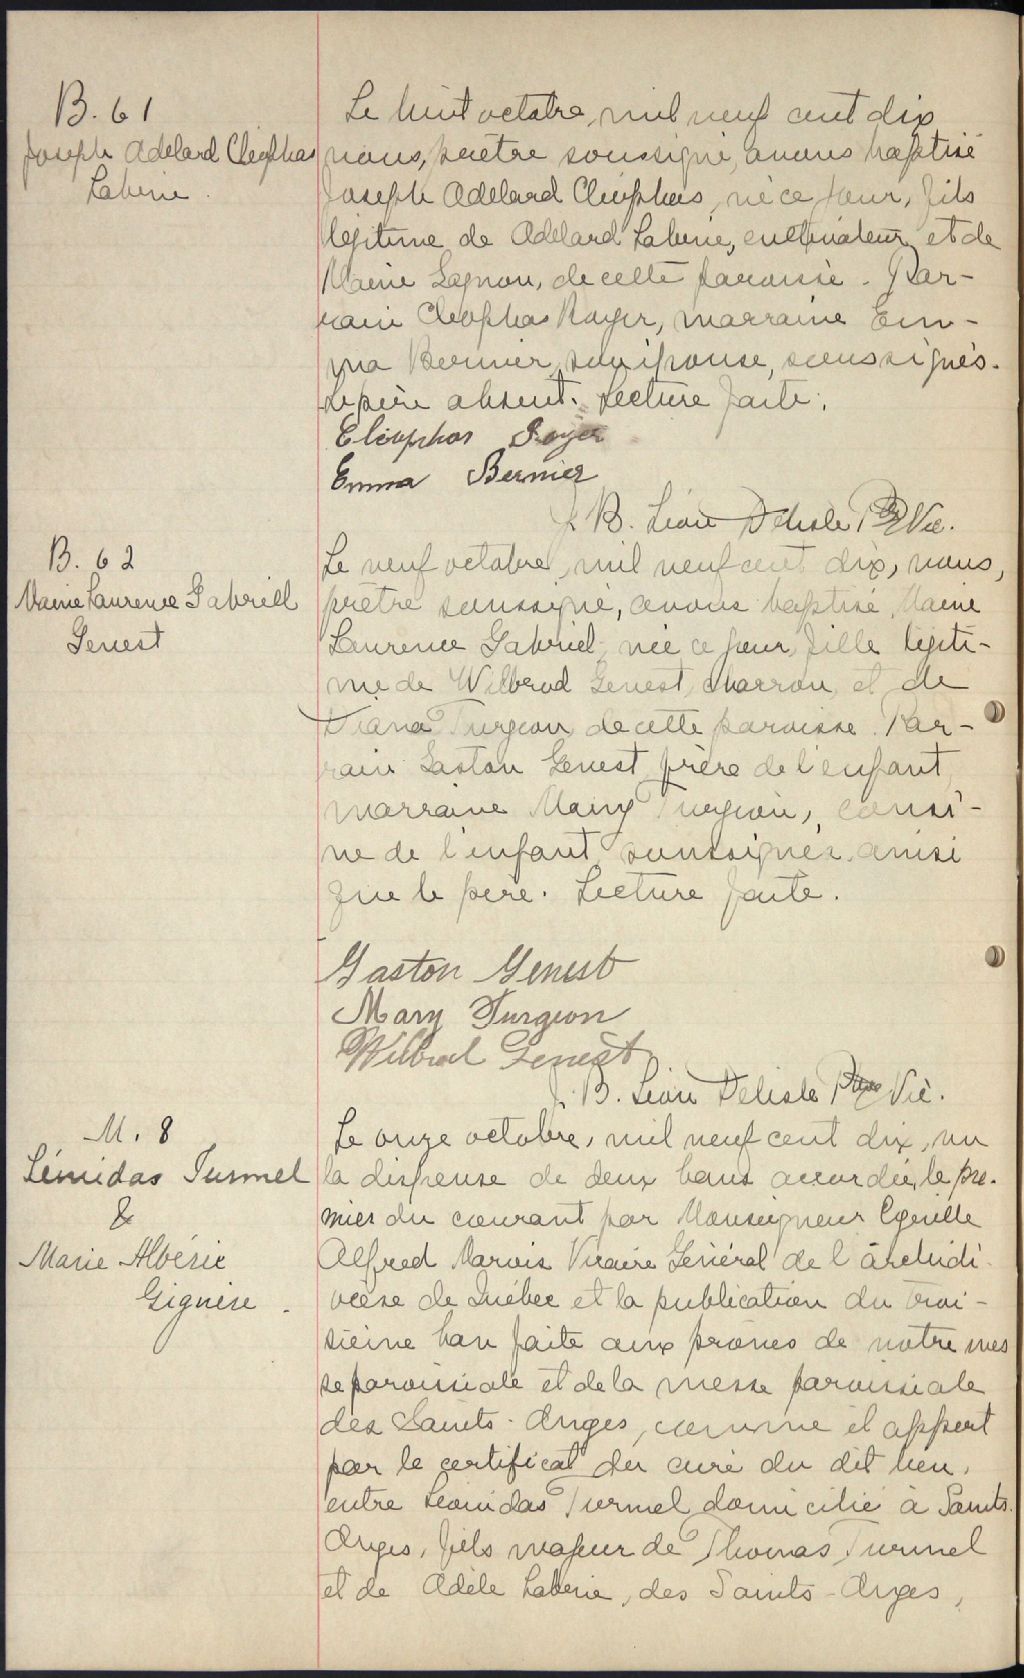 B. 61
Joseph Adelard Cléophas
Labrie.
Le huit octobre, mil neuf cent dix
nous, prêtre soussigné, avons baptisé
Joseph Adélard Cléophas, né ce jour, fils
légitime de Adélard Labrie, cultivateur, et de
Marie Gagnon, de cette paroisse. Par-
rain Cléophas Royer, marraine Em-
ma Bernier, son épouse, soussignés.
Le père absent. Lecture faite.
Cléophas Royer
Emma Bernier
J. B. Léon Delisle Ptre Vic.
B. 62
Marie Laurence Gabriell
Genest
Le neuf octobre, mil neuf cent dix, nous,
prêtre soussigné, avons baptisé Marie
Laurence Gabriel, née ce jour, fille légiti-
me de Wilbrod Genest, charron, et de
Diana Turgeon, de cette paroisse. Par-
rain Gaston Genest, frère de l'enfant,
marraine Mary Turgeon, cousi-
ne de l'enfant soussignés ainsi
que le père. Lecture faite.
Gaston Genest
Mary Turgeon
Wilbrod Genest
J. B. Léon Delisle Ptre Vic.
M. 8
Léonidas Turmel
&
Marie Albéric
Gignère.
Le onze octobre, mil neuf cent dix, vu
la dispense de deux bans accordée, le pre-
mier du courant par Monseigneur Cyrille
Alfred Marois Vicaire Général de l'archidi-
ocèse de Québec et la publication du troi-
sième ban faite aux prônes de notre mes
se paroissiale et de la messe paroissiale
des Saints-Anges, comme il appert
par le certificat du curé du dit lieu,
entre Léonidas Turmel domicilié à Saints-
Anges, fils majeur de Thomas Turmel
et de Adèle Labrie, des Saints-Anges,